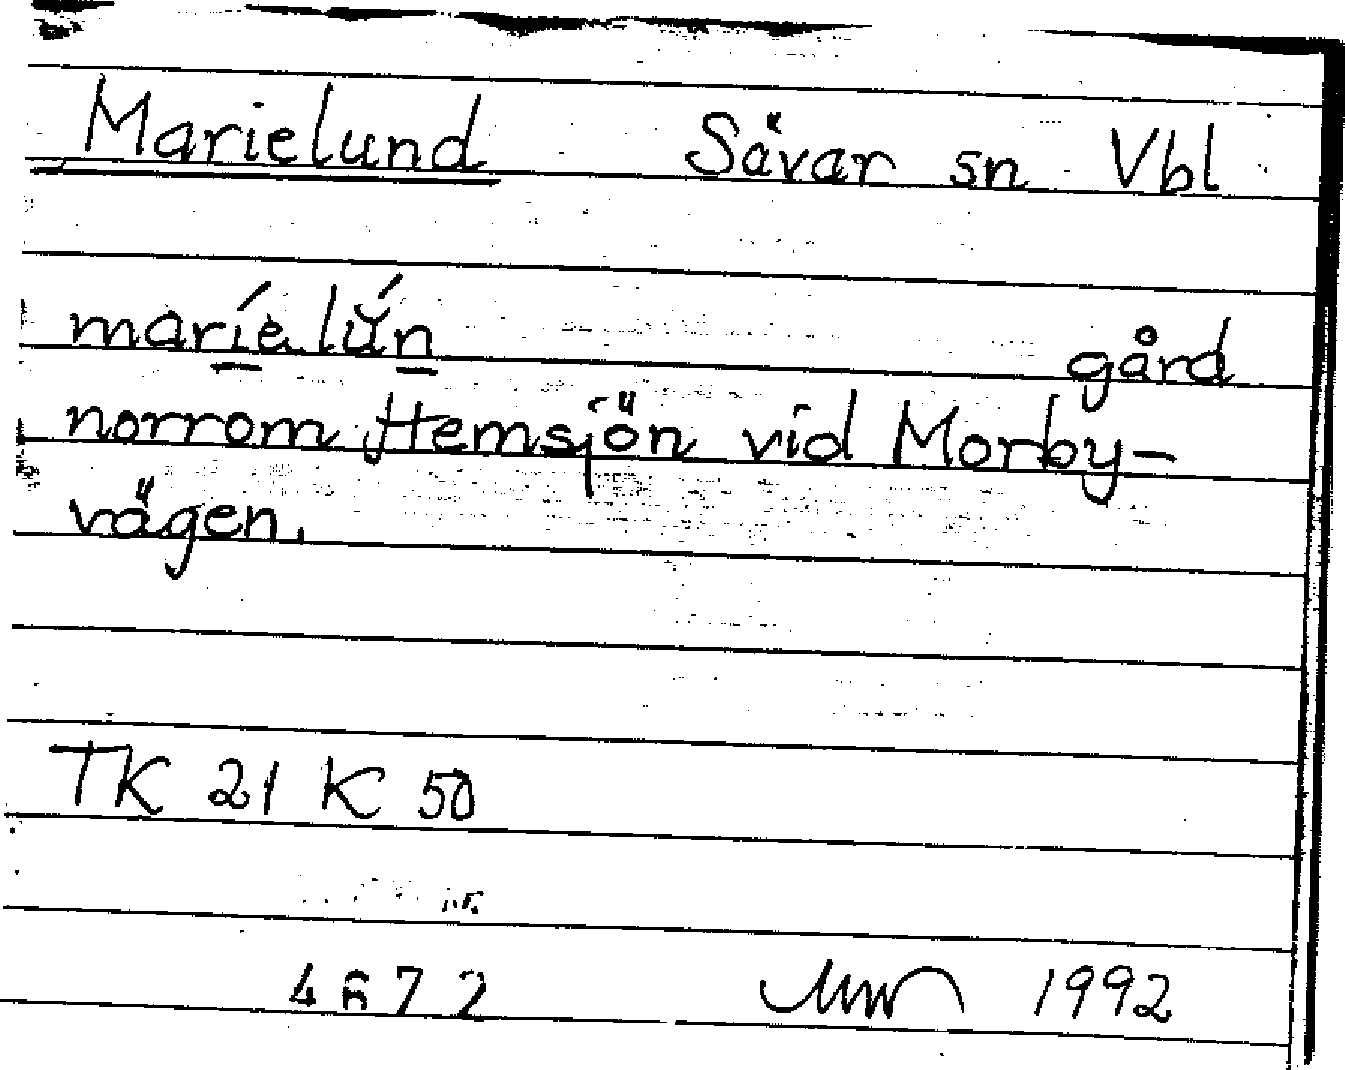 Marielund Sävar sn Vbl
maríelún gård
norrom Hemsjön vid Morby-
vägen.
TK 21 K 50
4672 1992